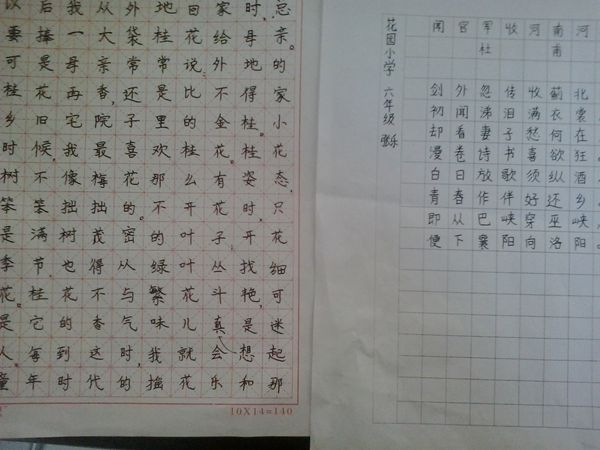 以后我从外地回家时,总
要捧一大袋桂花给母亲。
可是母亲常常说:外地的
桂花再香,还是比不得家
乡旧宅院子里的金桂。小
时候,我最喜欢桂花。桂花
树不像梅花那么有姿态,
笨笨拙拙的。不开花时,只
是满树茂密的叶子,开花
季节,也得从绿叶丛找细
花。桂花不与繁花斗艳,可
是它的香气味儿真是迷
人。每到这时,我就会想起
童年时代的摇花乐和那
10X14=140
花园小学 六年级 张乐
闻官军收河南河
杜 南
剑外忽传收蓟北
初闻涕泪满衣裳。
却看妻子愁何在
漫卷诗书喜欲狂。
白日放歌须纵酒,
青春作伴好还乡。
即从巴峡穿巫峡,
便下襄阳向洛阳。